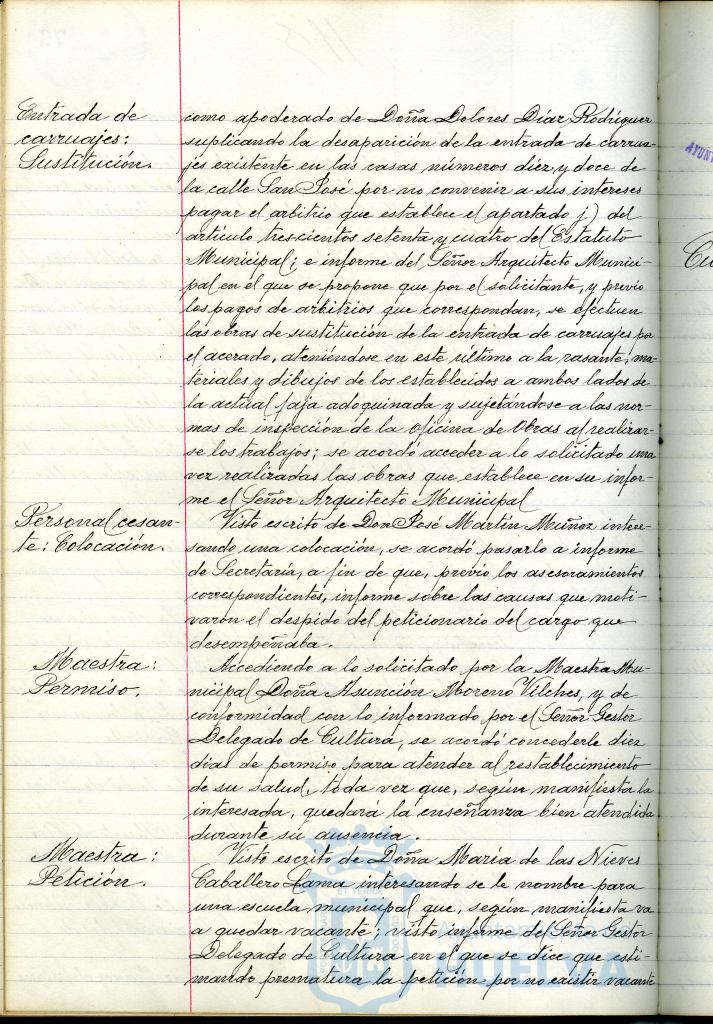 Entrada de
carruajes:
Sustitución.
como apoderado de Doña Dolores Díaz Rodríguez
suplicando la desaparición de la entrada de carrua-
jes existente en las casas números diez y doce de
la calle San José por no convenir a sus intereses
pagar el arbitrio que establece el apartado j) del
artículo trescientos setenta y cuatro del Estatuto
Municipal; e informe del Señor Arquitecto Munici-
pal en el que se propone que por el solicitante, y previo
los pagos de arbitrios que correspondan, se efectuen
las obras de sustitución de la entrada de carruajes por
el acerado, ateniéndose en este último a la rasante, ma-
teriales y dibujos de los establecidos a ambos lados de
la actual faja adoquinada y sujetándose a las nor-
mas de inspección de la oficina de Obras al realizar-
se los trabajos; se acordó acceder a lo solicitado una
vez realizadas las obras que establece en su infor-
me el Señor Arquitecto Municipal
Personal cesan-
te: Colocación.
Visto escrito de Don José Martín Muñoz intere-
sando una colocación, se acordó pasarlo a informe
de Secretaría, a fin de que, previo los asesoramientos
correspondientes, informe sobre las causas que moti-
varon el despido del peticionario del cargo que
desempeñaba.
Maestra:
Permiso.
Accediendo a lo solicitado por la Maestra Mu-
nicipal Doña Asunción Moreno Vilches, y de
conformidad con lo informado por el Señor Gestor
Delegado de Cultura, se acordó concederle diez
días de permiso para atender al restablecimiento
de su salud, toda vez que, según manifiesta la
interesada, quedará la enseñanza bien atendida
durante su ausencia.
Maestra:
Petición.
Visto escrito de Doña María de las Nieves
Caballero Lama interesando se le nombre para
una escuela municipal que, según manifiesta va
a quedar vacante; visto informe del Señor Gestor
Delegado de Cultura en el que se dice que esti-
mando prematura la petición por no existir vacante
AYUNT
Cu
HUELVA